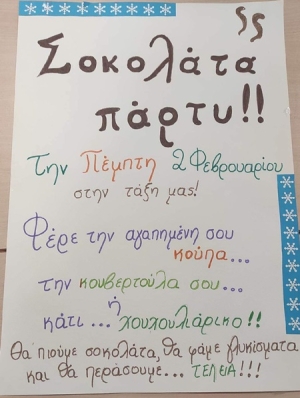 Σοκολάτα
πάρτυ!!
Την Πέμπτη 2 Φεβρουαρίου
στην τάξη μας!
Φέρε την αγαπημένη σου
κούπα...
την κουβερτούλα σου...
ή
κάτι... χουχουλιάρικο!!
Θα πιούμε σοκολάτα, θα φάμε γλυκίσματα
και θα περάσουμε... τέλεια!!!